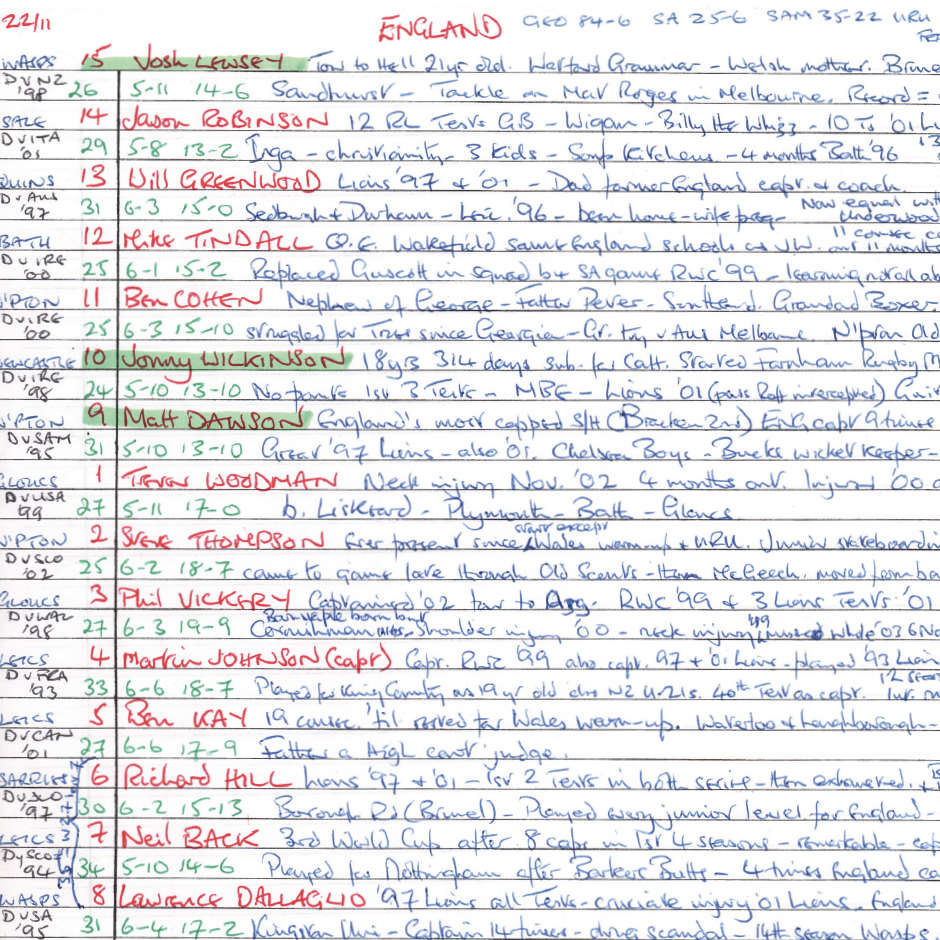 22/11 ENGLAND GEO 84-6 SA 25-6 SAM 35-22 URU
WASPS 15 Josh LEWSEY Tour to Hell 21yr old. Watford Grammar - Welsh mother. Brune
DvNZ '98 26 5-11 14-6 Sandhurst - Tackle on Mat Rogers in Melbourne. Record =
SALE 14 Jason ROBINSON 12 RL Tests GB - Wigan - Billy the Whizz - 10 Ts '01 L
DvITA '01 29 5-8 13-2 Inga - christianity - 3 kids - Soup Kitchens - 4 months Bath '96
QUINS 13 Will GREENWOOD Lions '97 & '01 - Dad former England capt. & coach.
DvAus '97 31 6-3 15-0 Sedburgh & Durham - Leic. '96 - been home - wife preg - Now equal with Underwood
BATH 12 Mike TINDALL Q.E. Wakefield same England schools as JW. 11 months
DvIRE '00 25 6-1 15-2 Replaced Guscott in squad b4 SA game RWC '99 - learning not all ab
N'PTON 11 Ben COHEN Nephew of George - Father Peter - Grandad Boxer.
DvIRE '00 25 6-3 15-10 struggled for Tries since Georgia - Gr. try v Aus Melbourne. N'pton Old
NEWCASTLE 10 Jonny WILKINSON 18yrs 314 days sub. for Catt. Started Farnham Rugby M
DvIRE '98 24 5-10 13-10 No points 1st 3 Tests - MBE - Lions '01 (pass Roff intercepted)
N'PTON 9 Matt DAWSON England's most capped S/H (Bracken 2nd) ENG capt 9 times
DvSAM '95 31 5-10 13-10 Great '97 Lions - also '01. Chelsea Boys - Bucks wicket keeper -
GLOUCS 1 Trevor WOODMAN Neck injury Nov. '02 4 months out. Injured '00
DvUSA '99 27 5-11 17-0 b. Liskeard - Plymouth - Bath - Gloucs
N'PTON 2 Steve THOMPSON Ever present since start except Wales warm-up & URU. Junior skateboardin
DvSCO '02 25 6-2 18-7 came to game late through Old Scouts - then McGeech. moved from ba
GLOUCS 3 Phil VICKERY Captained '02 tour to Arg. RWC '99 & 3 Lions Tests '01
DvWAL '98 27 6-3 19-9 Barnstaple born but Cornishman - Shoulder injury '00 - neck injury '99 missed whole '03 6N
LEICS 4 Martin JOHNSON (capt) Capt. RWC '99 also capt. '97 & '01 Lions - played '93 Lion
DvFRA '93 33 6-6 18-7 Played for King Country as 19 yr old also NZ U-21s. 40th Test as capt.
LEICS 5 Ben KAY 19 consec. 'til rested for Wales warm-up. Waterloo & Loughborough -
DvCAN '01 27 6-6 17-9 Father a High court judge.
SARRIES 6 Richard HILL Lions '97 & '01 - 1st 2 Tests in both series - then
DvSCO '97 30 6-2 15-13 Borough Rd (Brunel) - Played every junior level for England -
LEICS 7 Neil BACK 3rd World Cup after 8 caps in 1st 4 seasons - remarkable -
DvSCO '94 34 5-10 14-6 Played for Nottingham after Barkers Butts - 4 times England ca
WASPS 8 Lawrence DALLAGLIO '97 Lions all Tests - cruciate injury '01 Lions. England
DvSA '95 31 6-4 17-2 Kingston Uni - Captain 14 times - drugs scandal - 14th season Wasps.